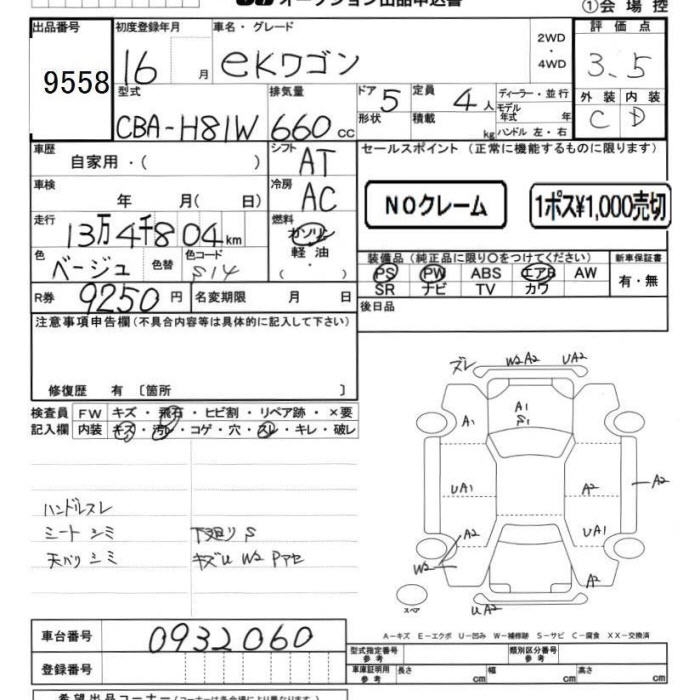 オークション出品申込書
①会場控
出品番号
9558
初度登録年月
16 月
車名・グレード
eKワゴン
2WD
・
4WD
評価点
3.5
型式
CBA-H81W
排気量
660 cc
ドア 5
形状
定員 4 人
積載 kg
ディーラー・並行
モデル年式 年
ハンドル 左・右
外装 内装
C D
車歴
自家用・( )
シフト
AT
車検
年 月( 日)
冷房
AC
セールスポイント(正常に機能するものに限ります)
NOクレーム
1ポス¥1,000売切
走行
13万4千804km
燃料
ガソリン
軽油
( ・ )
色
ベージュ
色替
色コード
S14
装備品(純正品に限り○をつけてください)
PS PW ABS エアB AW
SR ナビ TV カワ
新車保証書
有・無
R券 9250 円
名変期限 月 日
後日品
注意事項申告欄(不具合内容等は具体的に記入して下さい)
修復歴 有 〔箇所 〕
検査員記入欄
FW キズ・飛石・ヒビ割・リペア跡・×要
内装 キズ・汚レ・コゲ・穴・スレ・キレ・破レ
ハンドルスレ
シートシミ
天バリシミ
下廻りS
キズU W2 Pアセ
ズレ W2 A2 UA2
A1
S1
A1
UA1 A2 A2
A2 UA1
W2 A2
スペア
UA2
A-キズ E-エクボ U-凹み W-補修跡 S-サビ C-腐食 XX-交換済
車台番号
0932060
登録番号
型式指定番号 参考
類別区分番号 参考
車庫証明用 参考
長さ cm
幅 cm
高さ cm
希望出品コーナー(コーナーは各会場により異なります)